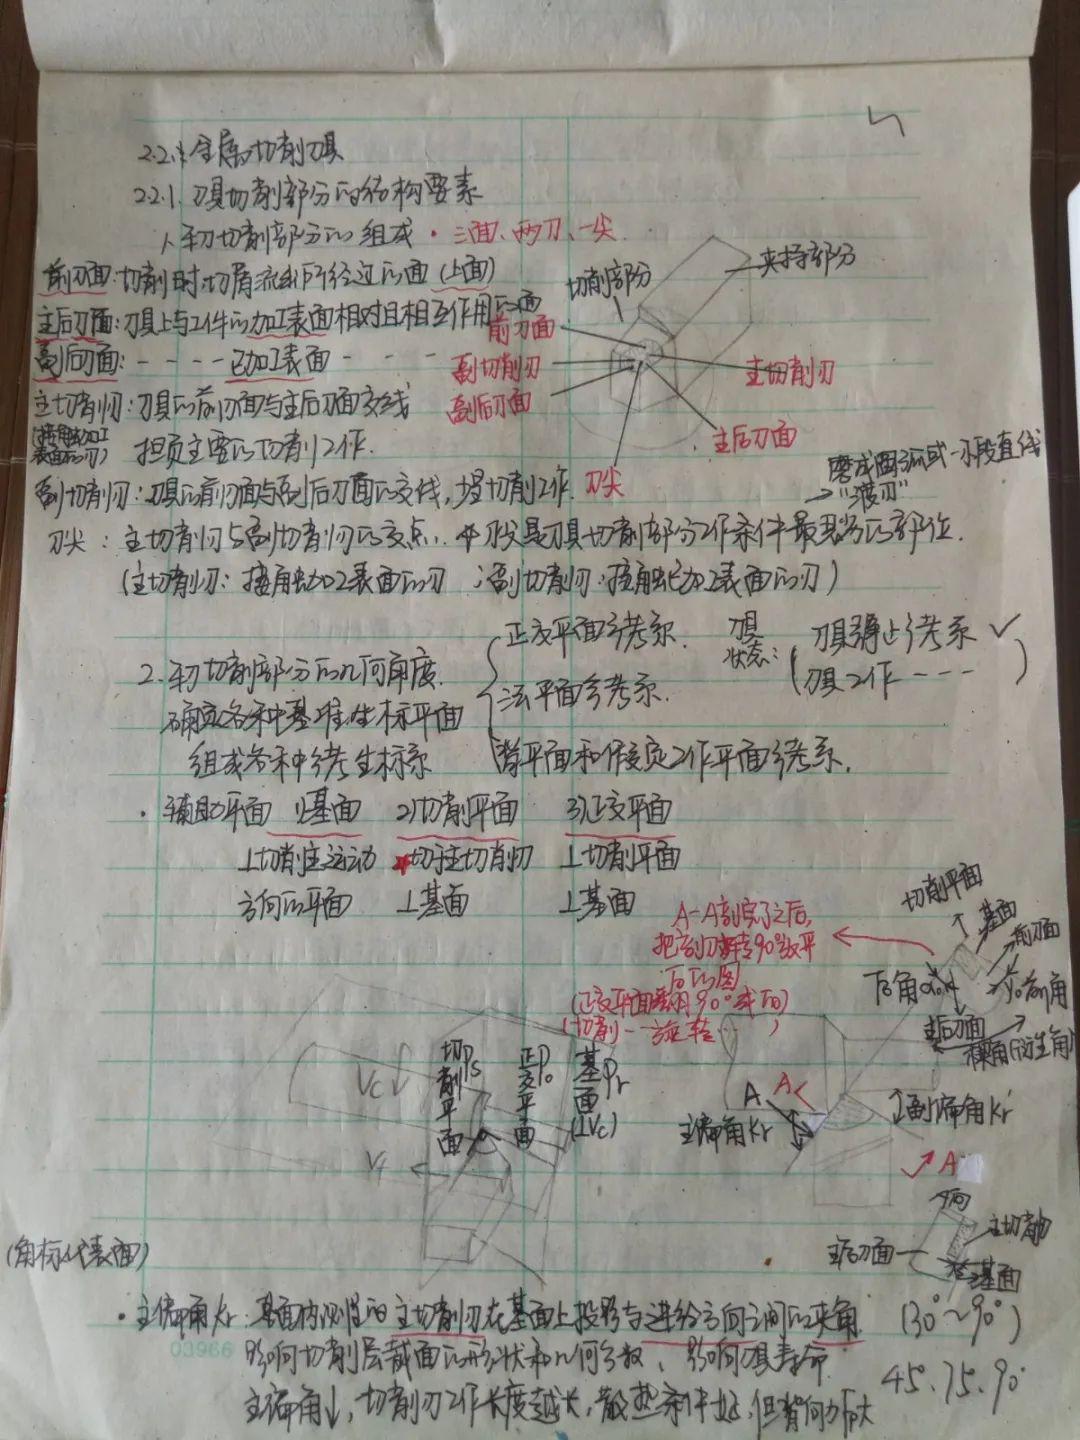 2.2 金属切削刀具
2.2.1. 刀具切削部分的结构要素
1、车刀切削部分的组成 · 三面、两刃、一尖
前刀面:切削时切屑流出所经过的面(上面)
切削部分
夹持部分
主后刀面:刀具上与工件的加工表面相对且相互作用的面
前刀面
副后刀面:- - - - 已加工表面 - - -
副切削刃
主切削刃
主切削刃:刀具的前刀面与主后刀面交线
副后刀面
担负主要的切削工作.
主后刀面
磨成圆弧或一小段直线
副切削刃:刀具的前刀面与副后刀面的交线,
切削工作.
刀尖
→"过渡刃"
刀尖:主切削刃与副切削刃的交点.
是刀具切削部分工作条件最恶劣的部位.
(主切削刃:接触加工表面的刃;副切削刃:接触已加工表面的刃)
2.车刀切削部分的几何角度.
确定各种基准坐标平面
组成各种参考坐标系
正交平面参考系.
法平面参考系.
背平面和假定工作平面参考系.
刀具状态:
刀具静止参考系 ✓
刀具工作 - - -
· 辅助平面 1)基面 2)切削平面 3)正交平面
⊥切削主运动 切于主切削刃 ⊥切削平面
方向的平面 ⊥基面 ⊥基面
A-A剖完了之后,
把刀转90°放平
后的图
切削平面
基面
前刀面
后角α₀
γ₀前角
主后刀面
楔角(派生角)
Vc
切削平面 Ps
正交平面 Po
基面 Pr
(⊥Vc)
Vf
A
A
主偏角Kr
副偏角Kr'
A
A向
主后刀面
主切削
基面
(角标代表面)
· 主偏角Kr:基面内测量的主切削刃在基面上投影与进给方向之间的夹角. (30°~90°)
影响切削层截面的形状和几何参数、影响刀具寿命
45、75、90°
主偏角↓,切削刃工作长度越长,散热条件好,但背向力Fp大
03966